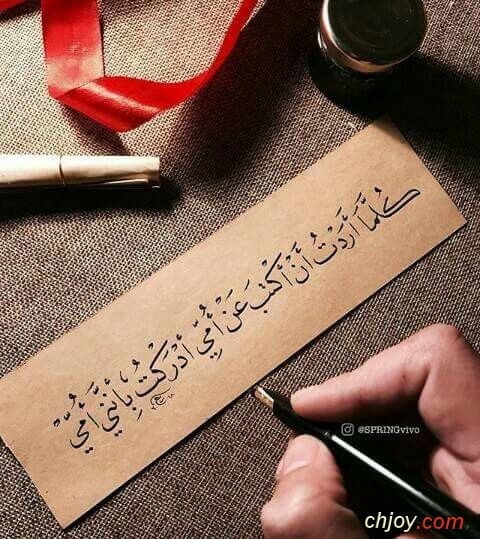 كُلَّمَا أَرَدْتُ أَنْ أَكْتُبَ عَنْ أُمِّي أَدْرَكْتُ بِأَنَّنِي أُمِّيْ
@SPRINGvivo
chjoy.com